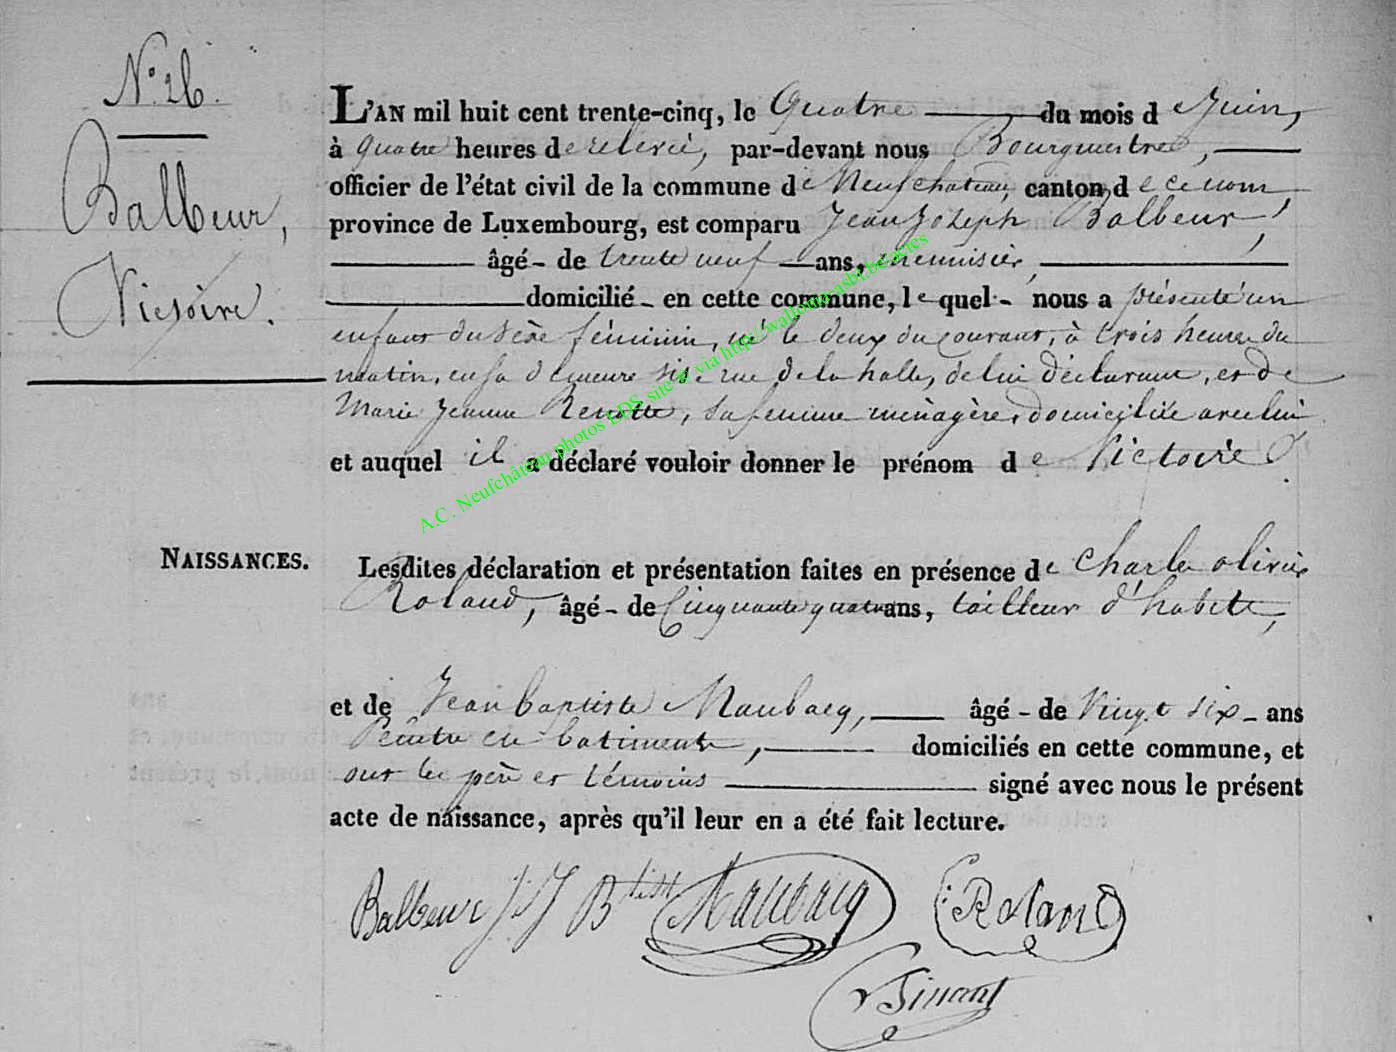 N.° 26.
Balbeur,
Victoire.
L'AN mil huit cent trente-cinq, le Quatre du mois de Juin,
à quatre heures de relevée, par-devant nous Bourgmestre,
officier de l'état civil de la commune de Neufchateau, canton de ce nom
province de Luxembourg, est comparu Jean Joseph Balbeur,
âgé - de trente neuf ans, menuisier,
domicilié - en cette commune, lequel - nous a présenté un
enfant du sexe féminin, né le deux du courant, à trois heures du
matin, en sa demeure sise rue de la halle, de lui déclarant, et de
Marie Jeanne Renotte, sa femme ménagère, domiciliée avec lui
et auquel il a déclaré vouloir donner le prénom de Victoire.
A.C. Neufchâteau photos LDS site et via http://wallonia.asbl.be/actes
NAISSANCES.
Lesdites déclaration et présentation faites en présence de Charles olivier
Roland, âgé - de Cinquante quatre ans, tailleur d'habits,
et de Jean baptiste Maubacq, âgé - de Vingt six - ans
Peintre en batiments, domiciliés en cette commune, et
ont les père et témoins signé avec nous le présent
acte de naissance, après qu'il leur en a été fait lecture.
Balbeur J J Btiste Maubacq C: Roland